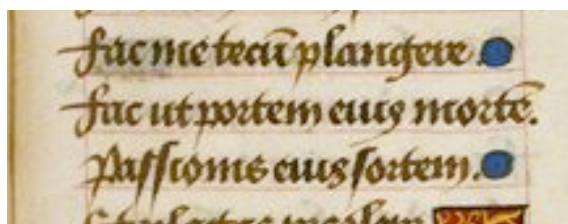 fac me tecū plangere.
fac ut portem eius mortē.
Passionis eius sortem.